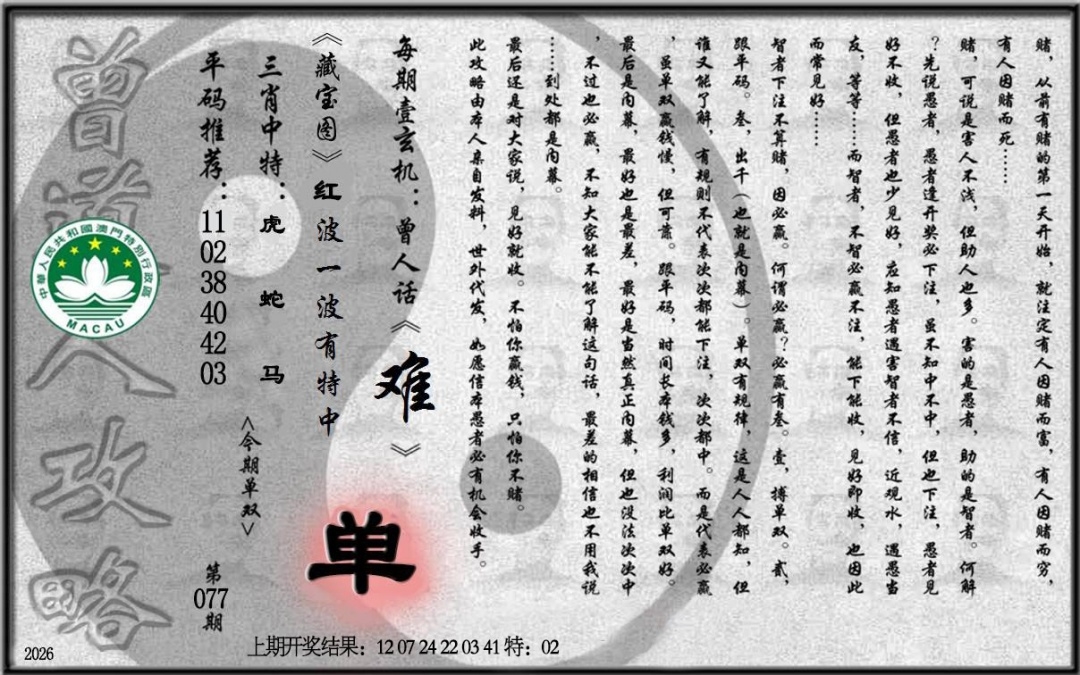 赌，从前有赌的第一天开始，就注定有人因赌而富，有人因赌而穷，
有人因赌而死……
赌，可说是害人不浅，但助人也多。害的是愚者，助的是智者。何解
？先说愚者，愚者逢开奖必下注，虽不知中不中，但也下注，愚者见
好不收，但愚者也少见好，应知愚者遇害智者不信，近观水，遇愚当
友，等等……而智者，不智必赢不注，能下能收，见好即收，也因此
而常见好……
智者下注不算赌，因必赢。何谓必赢？必赢有叁。壹，搏单双。贰，
跟平码。叁，出千（也就是内幕）。单双有规律，这是人人都知，但
谁又能了解，有规则不代表次次都能下注，次次都中。而是代表必赢
，虽单双赢钱慢，但可靠。跟平码，时间长本钱多，利润比单双好。
最后是内幕，最好也是最差，最好是当然真正内幕，但也没法次次中
，不过也必赢，不知大家能不能了解这句话，最差的相信也不用我说
……到处都是内幕。
最后还是对大家说，见好就收。不怕你赢钱，只怕你不赌。
此攻略由本人亲自发料，世外代发，如愿信本愚者必有机会收手。
每期壹玄机：曾人话《难》
《藏宝图》红波一波有特中
单
三肖中特：虎 蛇 马
<今期单双>
平码推荐：11 02 38 40 42 03
第077期
曾道人攻略
中華人民共和國澳門特別行政區
MACAU
2026
上期开奖结果：12 07 24 22 03 41 特：02